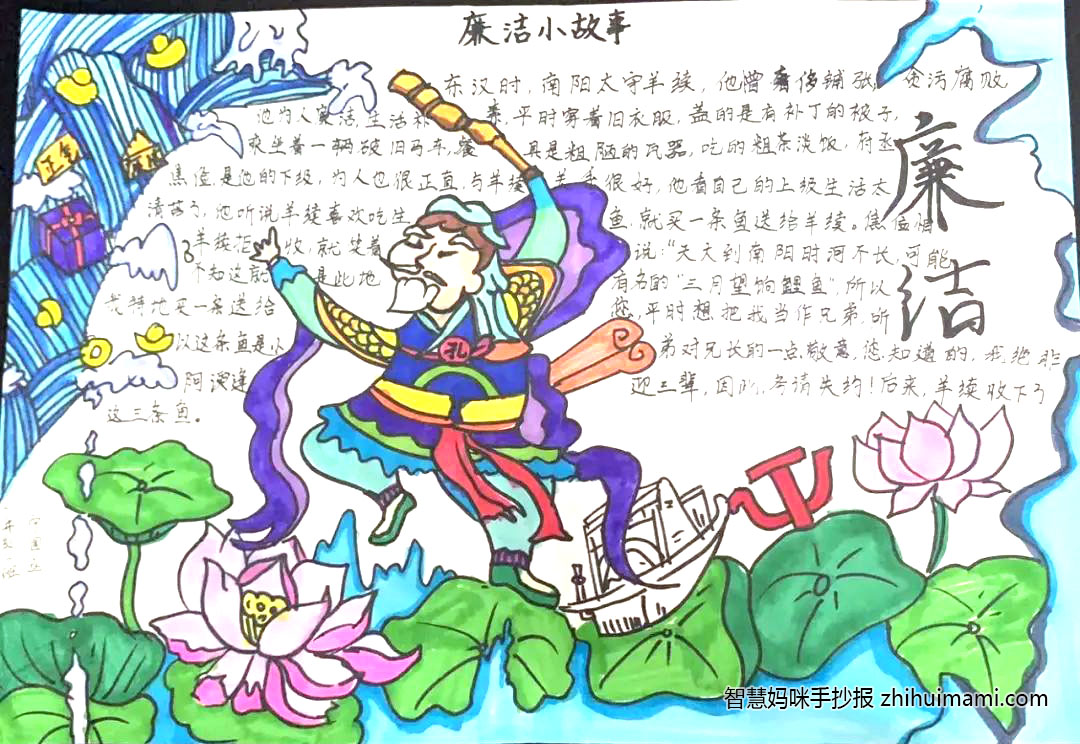 廉洁小故事
东汉时，南阳太守羊续，他憎 侈铺张 贪污腐败
他为人 洁,生活朴 素，平时穿着旧衣服，盖的是有补丁的被子，
乘坐着一辆破旧马车，餐 具是粗陋的瓦器，吃的粗茶淡饭，府丞
焦俭是他的下级，为人也很正直，与羊续 关系很好，他看自己的上级生活太
清苦了，他听说羊续喜欢吃生 鱼，就买一条鱼送给羊续。焦俭怕
羊续拒 收，就笑着 说：“大人到南阳时间不长，可能
不知这就 是此地 有名的“三月望饷鲤鱼”，所以
我特地买一条送给 您，平时 把我当作兄弟，所
以这条鱼是小 弟对兄长的一点敬意，您知道的，我绝非
阿谀逢 迎 辈，因此，务请 ！后来，羊续收下了
这三条鱼。
廉
结
正气
孔
智慧妈咪手抄报 zhihuimami.com